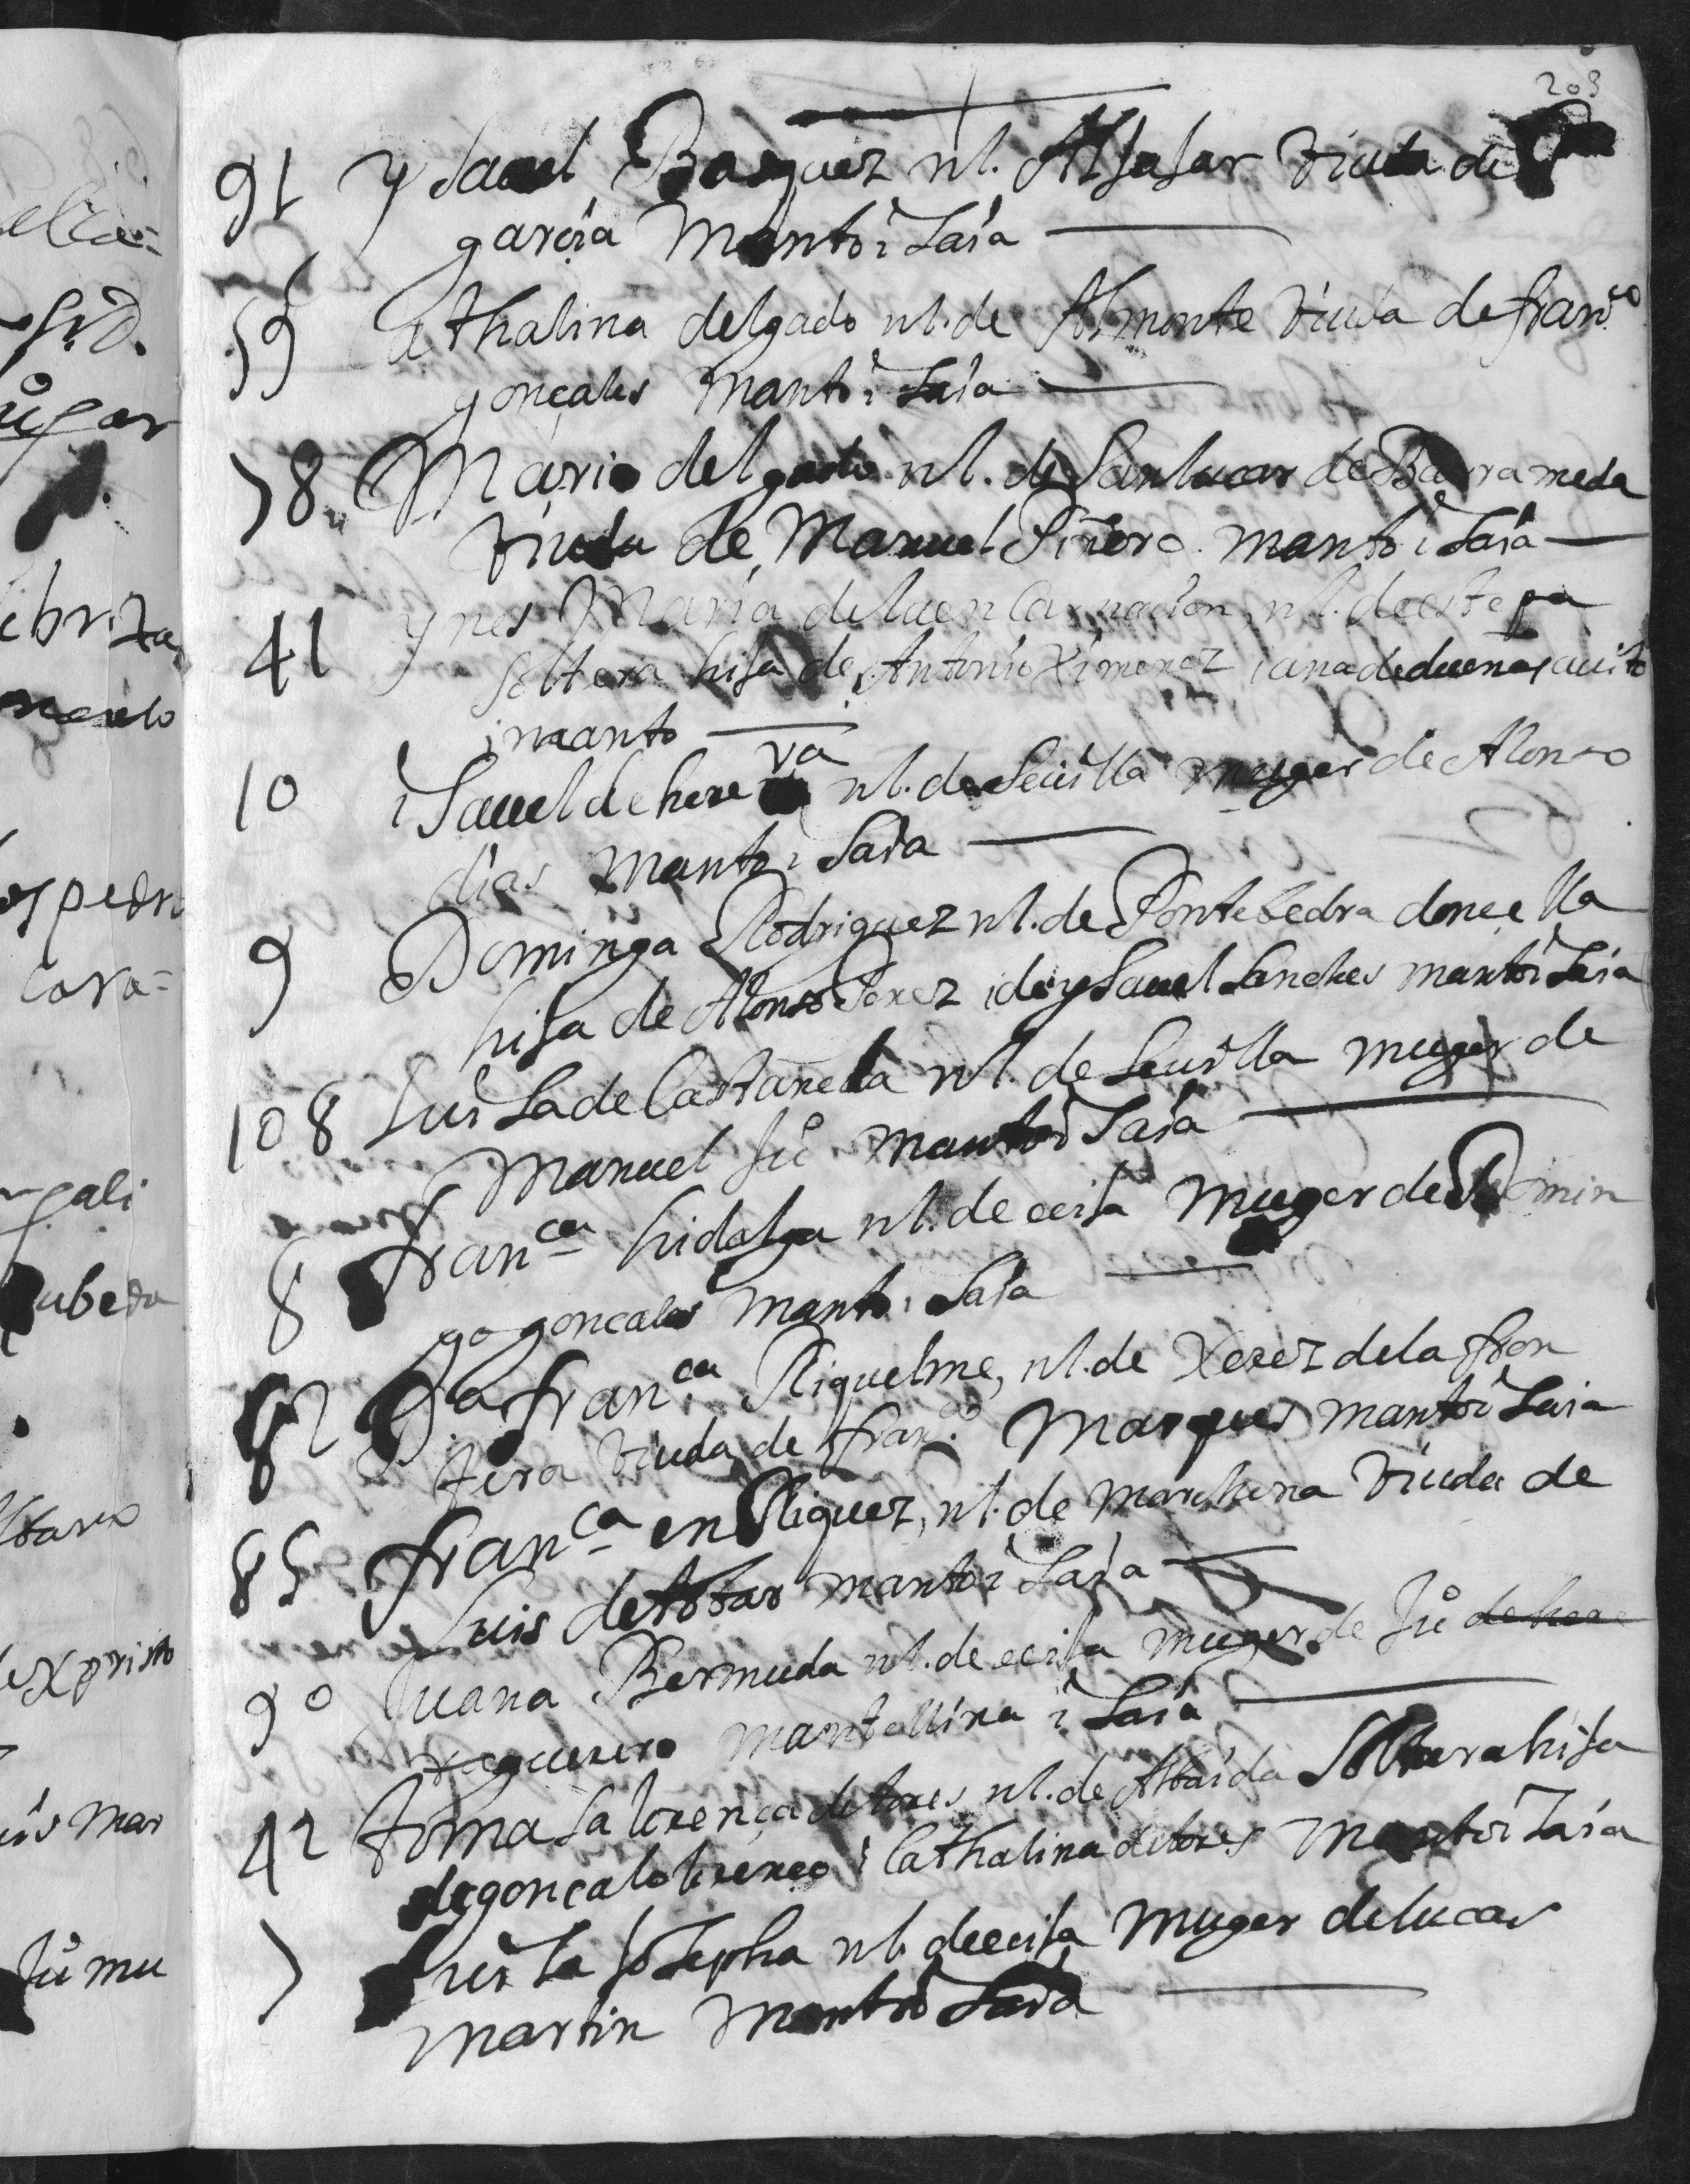 203
91 Ysauel Basquez nl. Alfafar viuda de
garcia manto i saia
59 Cathalina delgado nl. de Almonte viuda de franco
gonçales manto i saia
78 Maria delgado nl. de Sanlucar de Barrameda
viuda de Manuel Piñero manto i saia
41 ynes Maria de la encarnacion, nl. de estepa
soltera hija de Antonio Ximenez i ana de dueñas auito
i manto
10 iSauel de hereva nl. de Seuilla muger de Alonso
dias manto i saia
9 Dominga Rodriguez nl. de Pontebedra doncella
hija de Alonso Perez i de ysauel Sanches manto i saia
108 Luisa de Castañeda nl. de Seuilla muger de
Manuel Ju manto i saia
8 franca hidalga nl. de ecija muger de Domin
go gonçales manto i saia
82 Da franca Riquelme, nl. de Xerez de la fron
tera viuda de franco Marques manto i saia
85 franca enRiquez, nl. de marchena viuda de
Luis de tobar manto i saia
90 Juana Bermuda nl. de ecija muger de Ju de here
requexero mantellina i saia
42 tomasa lorença de tores nl. de Albaida soltera hija
de gonçalo lorenço i Cathalina de tores manto i saia
7 Justa Josepha nl. de ecija muger de lucas
martin manto i saia